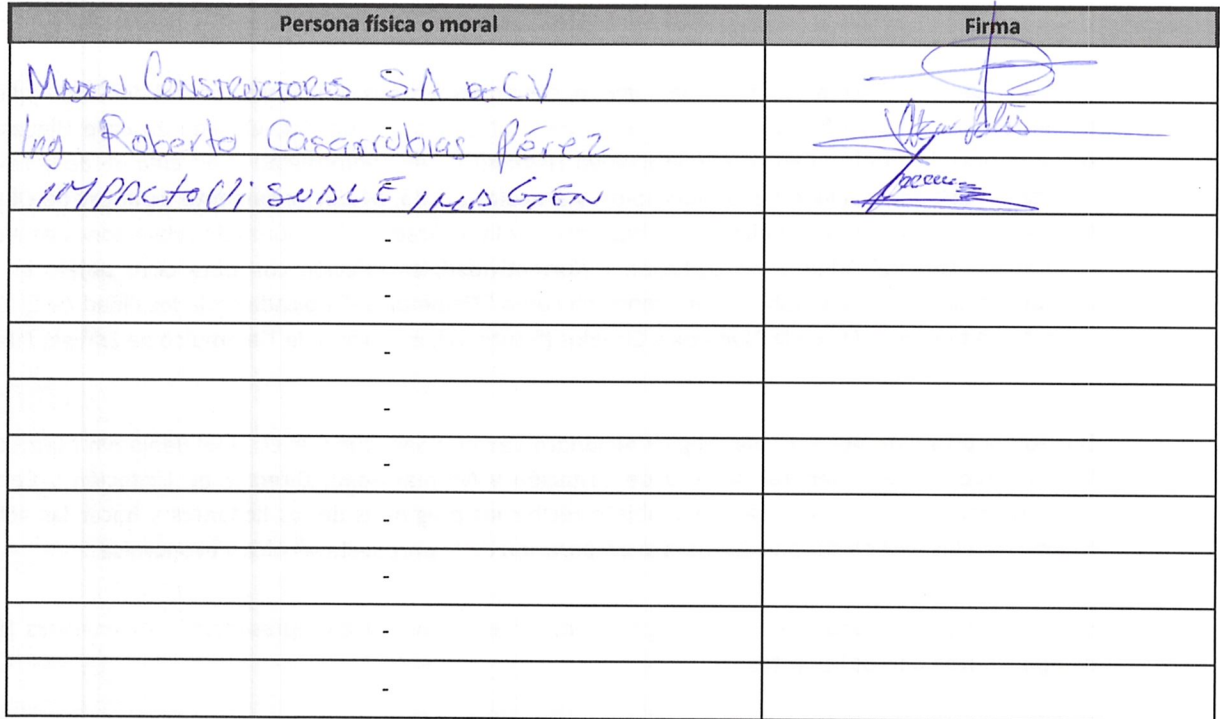 Persona física o moral Firma
MADEN CONSTRUCTORES S.A DE C.V
-
Ing Roberto Casarrubias Pérez
-
IMPACTO VISUAL E IMAGEN
-
-
-
-
-
-
-
-
-